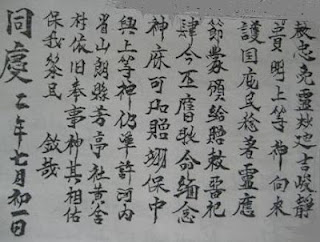 敕忠免靈妣地吉峻靜
貢明上等神向來
護囯庇民稔著靈應
節蒙頒給贈敕畱祀
肆今丕膺耿命緬念
神庥可加贈翊保中
興上等神仍準許河內
省山朗縣芳亭社黃舍
村依旧奉事神其相佑
保我黎民 欽哉
同慶二年七月初一日